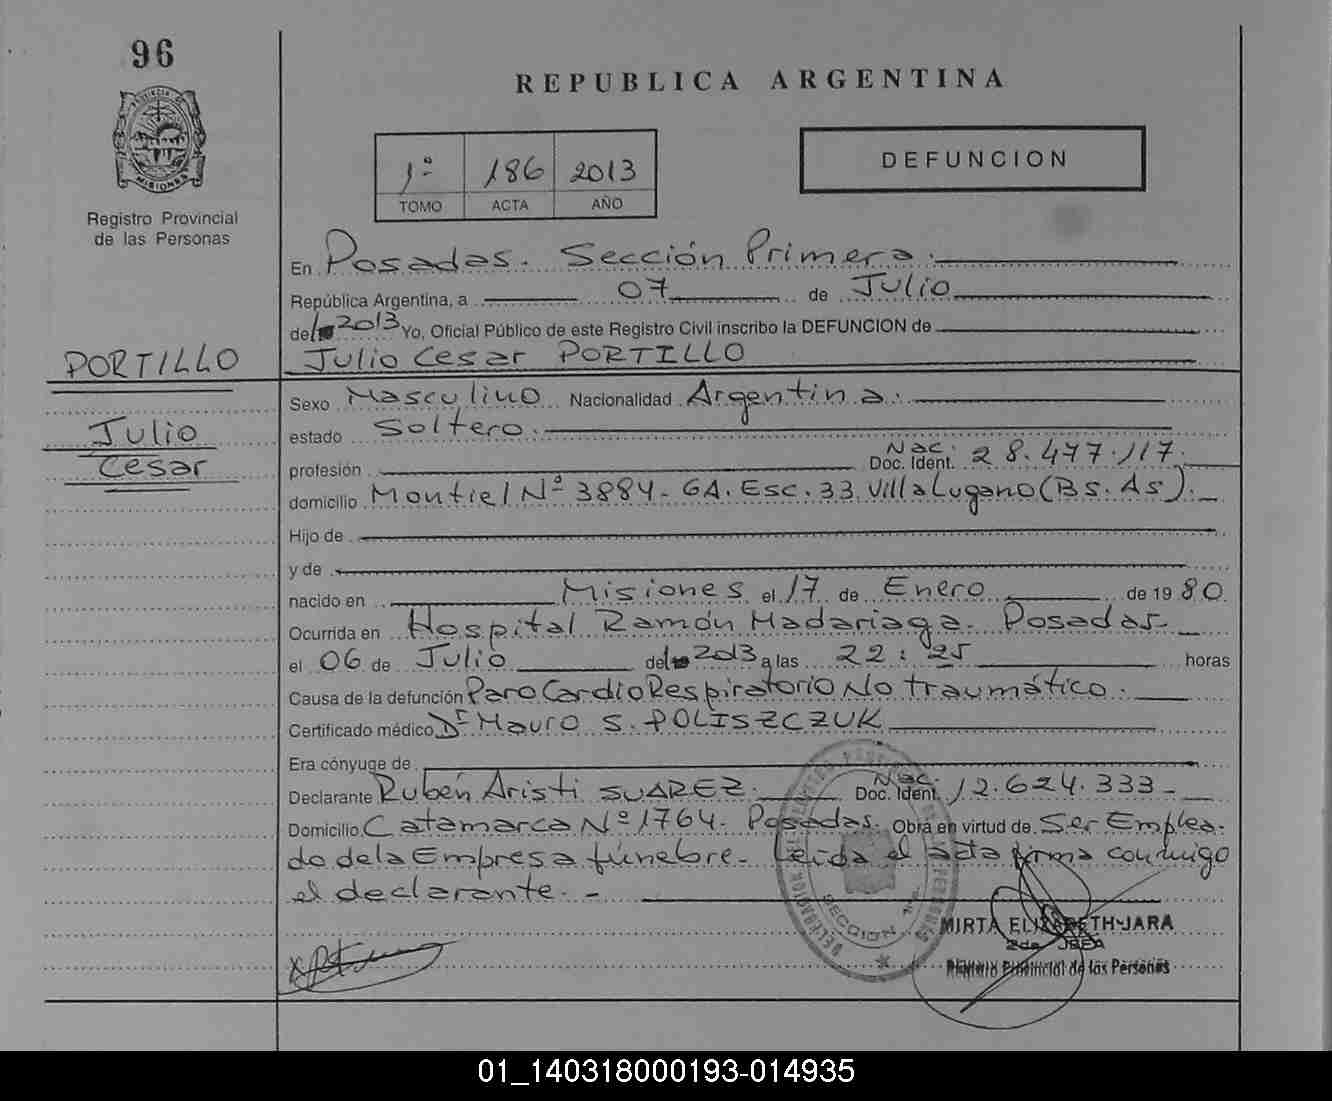 96
PROVINCIA DE
MISIONES
Registro Provincial
de las Personas
REPUBLICA ARGENTINA
1º 186 2013
TOMO ACTA AÑO
DEFUNCION
En Posadas. Sección Primera.
República Argentina, a 07 de Julio
de 2013 Yo, Oficial Público de este Registro Civil inscribo la DEFUNCION de
Julio Cesar PORTILLO
PORTILLO
Julio
Cesar
Sexo Masculino Nacionalidad Argentina.
estado Soltero.
profesión Doc. Ident. Nac. 28.477.117.
domicilio Montiel Nº 3884- 6A. Esc. 33. Villa Lugano (BS. As).
Hijo de
y de
nacido en Misiones el 17 de Enero de 1980
Ocurrida en Hospital Ramón Madariaga. Posadas-
el 06 de Julio del 2013 a las 22:25 horas
Causa de la defunción Paro Cardio Respiratorio No traumático.
Certificado médico Dr Mauro S. POLISZCZUK
Era cónyuge de
Declarante Rubén Aristi SUAREZ. Doc. Ident. Nac. 12.624.333-
Domicilio Catamarca Nº 1764. Posadas. Obra en virtud de Ser Emplea-
do de la Empresa fúnebre- Leida el acta firma conmigo
el declarante.-
SECCION 1ra.
MIRTA ELIZABETH JARA
2da JEFA
Registro Provincial de las Personas
01_140318000193-014935